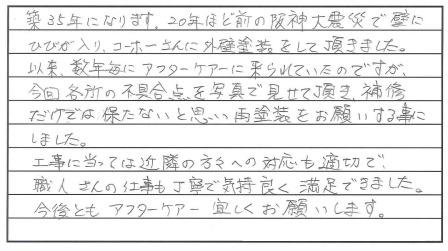 築35年になります。20年ほど前の阪神大震災で壁に
ひびが入り、コーホーさんに外壁塗装をして頂きました。
以来、数年毎にアフターケアーに来られていたのですが、
今回各所の不具合点を写真で見せて頂き、補修
だけでは保たないと思い再塗装をお願いする事に
しました。
工事に当っては近隣の方々への対応も適切で、
職人さんの仕事も丁寧で気持良く満足できました。
今後ともアフターケアー宜しくお願いします。